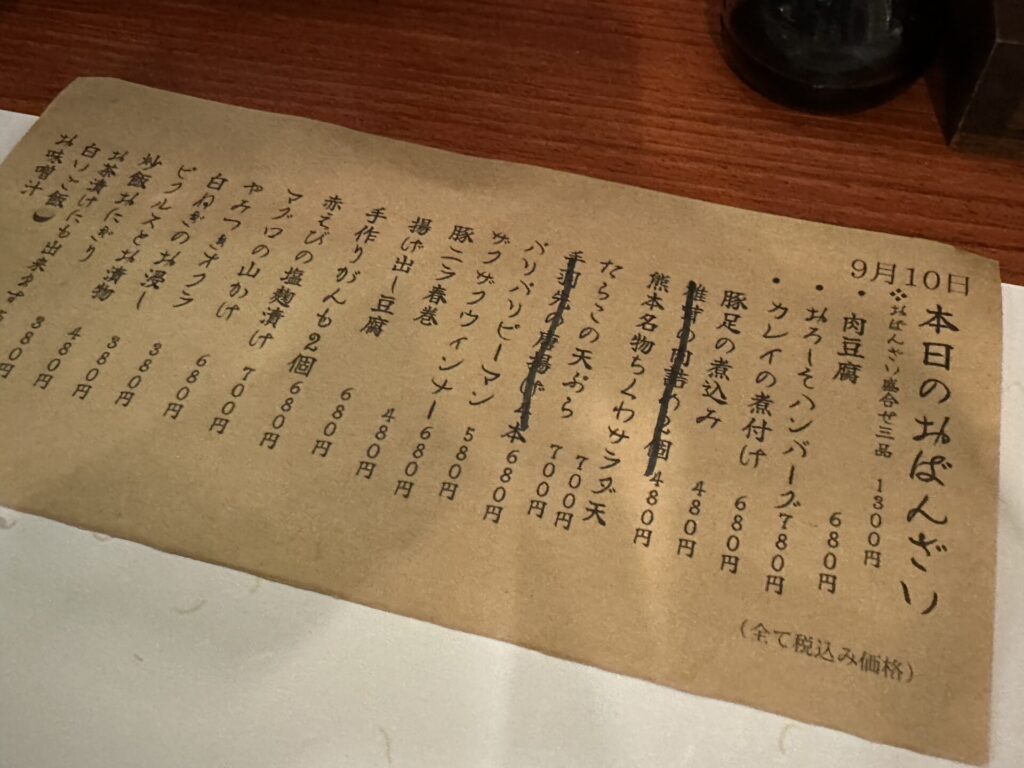 9月10日
本日のおばんざい
❖おばんざい盛合せ三品 1300円
・肉豆腐 680円
・おろしそハンバーグ 780円
・カレイの煮付け 680円
豚足の煮込み 480円
椎茸の肉詰め2個 480円
熊本名物ちくわサラダ天 700円
たらこの天ぷら 700円
手羽先の唐揚げ4本 680円
パリパリピーマン 580円
ザクザクウィンナー 680円
豚ニラ春巻 480円
揚げ出し豆腐 680円
手作りがんも2個 680円
赤えびの塩麹漬け 700円
マグロの山かけ 680円
やみつきオクラ 380円
白ねぎのお浸し 380円
ピクルスとお漬物 480円
炒飯おにぎり 380円
お茶漬けにも出来ます
白いご飯
お味噌汁
(全て税込み価格)